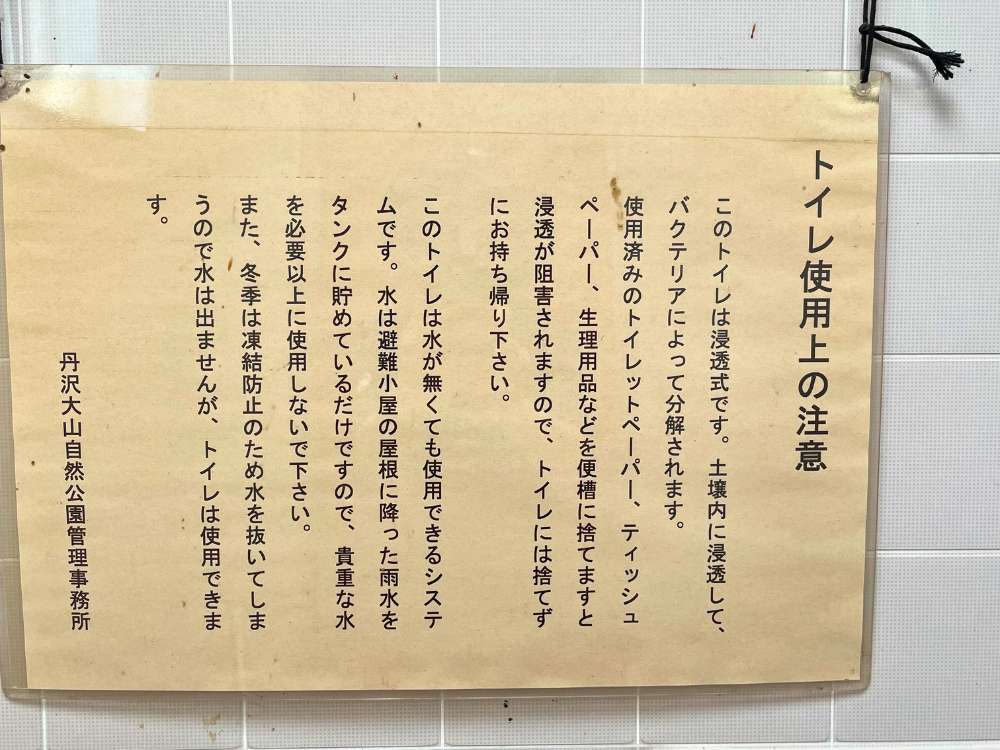 トイレ使用上の注意
このトイレは浸透式です。土壌内に浸透して、
バクテリアによって分解されます。
使用済みのトイレットペーパー、ティッシュ
ペーパー、生理用品などを便槽に捨てますと
浸透が阻害されますので、トイレには捨てず
にお持ち帰り下さい。
このトイレは水が無くても使用できるシステ
ムです。水は避難小屋の屋根に降った雨水を
タンクに貯めているだけですので、貴重な水
を必要以上に使用しないで下さい。
また、冬季は凍結防止のため水を抜いてしま
うので水は出ませんが、トイレは使用できま
す。
丹沢大山自然公園管理事務所